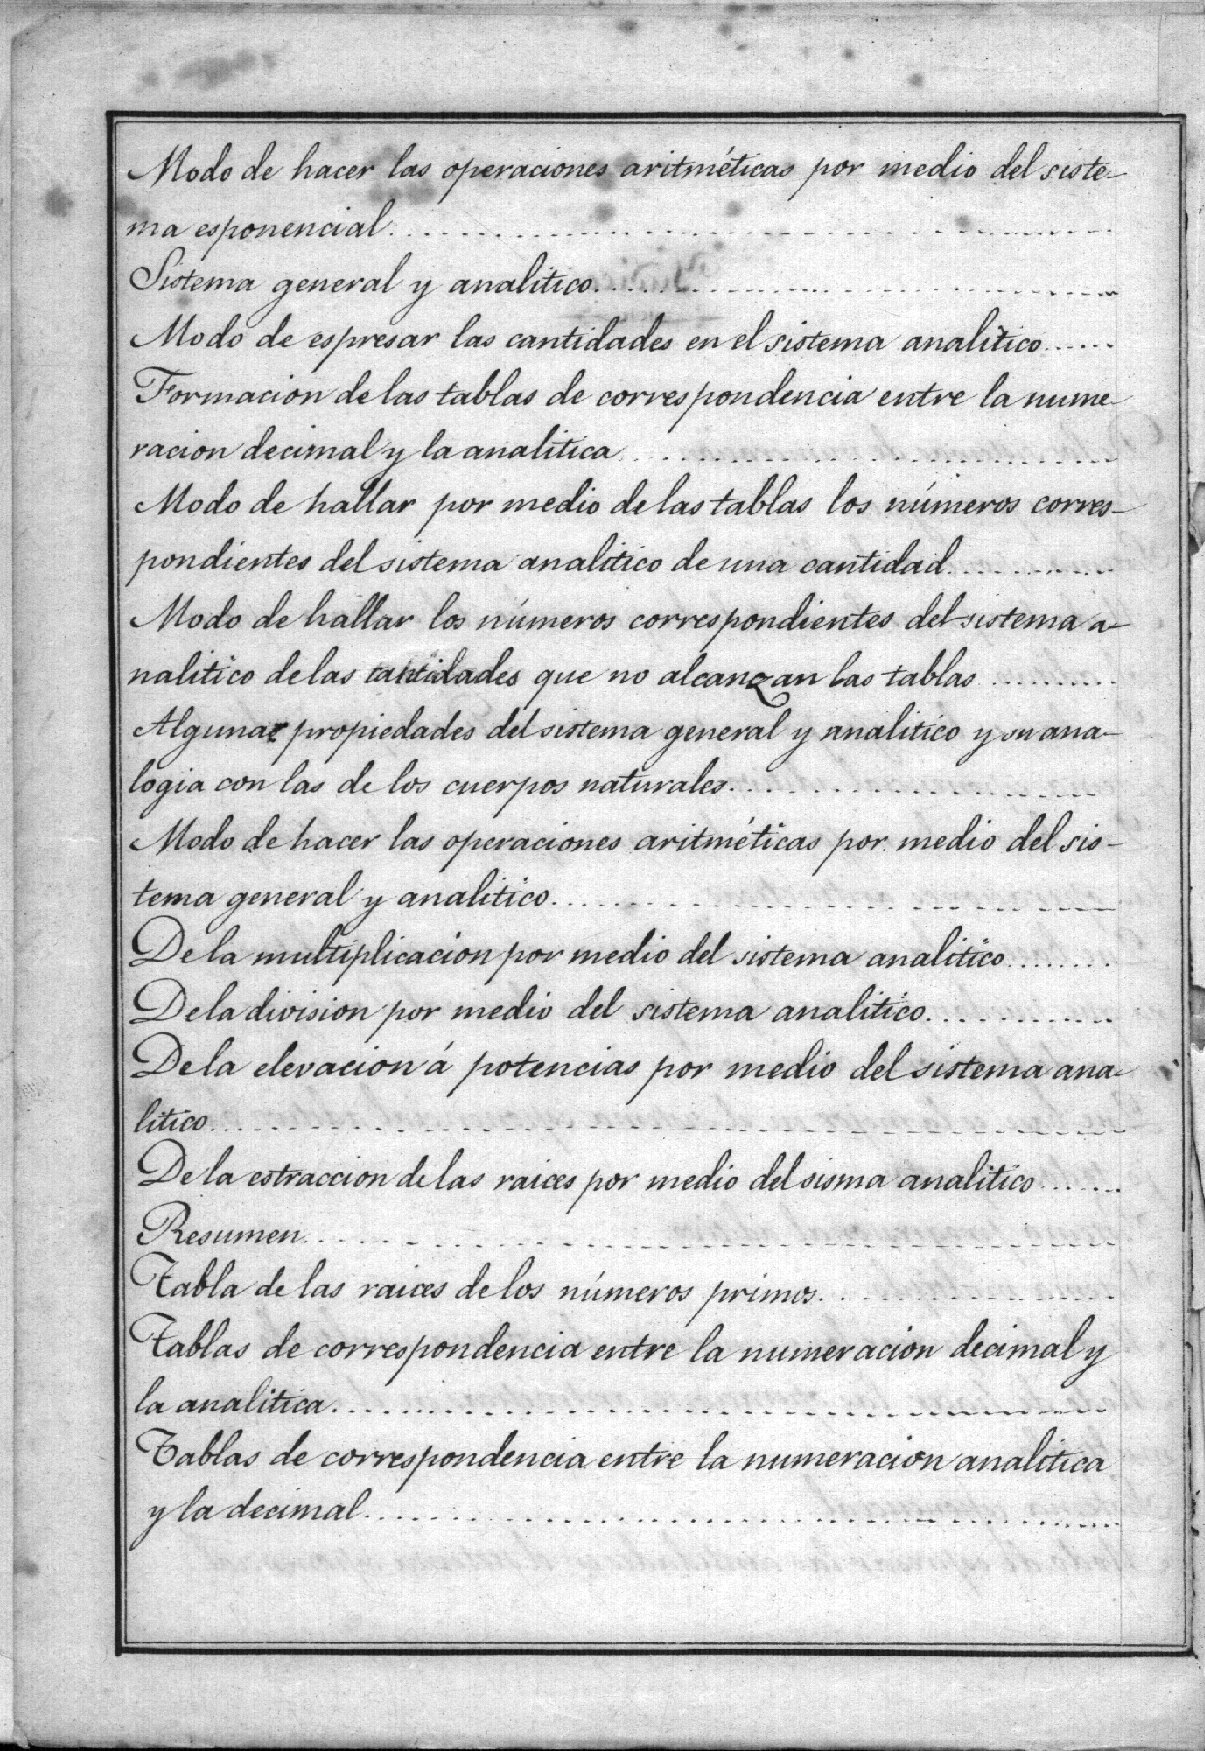 Modo de hacer las operaciones aritméticas por medio del siste-
ma esponencial
Sistema general y analitico
Modo de espresar las cantidades en el sistema analitico
Formacion de las tablas de correspondencia entre la nume-
racion decimal y la analitica
Modo de hallar por medio de las tablas los números corres-
pondientes del sistema analitico de una cantidad
Modo de hallar los números correspondientes del sistema a-
nalitico de las cantidades que no alcanzan las tablas
Algunas propiedades del sistema general y analitico y su ana-
logia con las de los cuerpos naturales
Modo de hacer las operaciones aritméticas por medio del sis-
tema general y analitico
De la multiplicacion por medio del sistema analitico
De la division por medio del sistema analitico
De la elevacion á potencias por medio del sistema ana-
litico
De la estraccion de las raices por medio del sisma analitico
Resumen
Tabla de las raices de los números primos
Tablas de correspondencia entre la numeracion decimal y
la analitica
Tablas de correspondencia entre la numeracion analitica
y la decimal